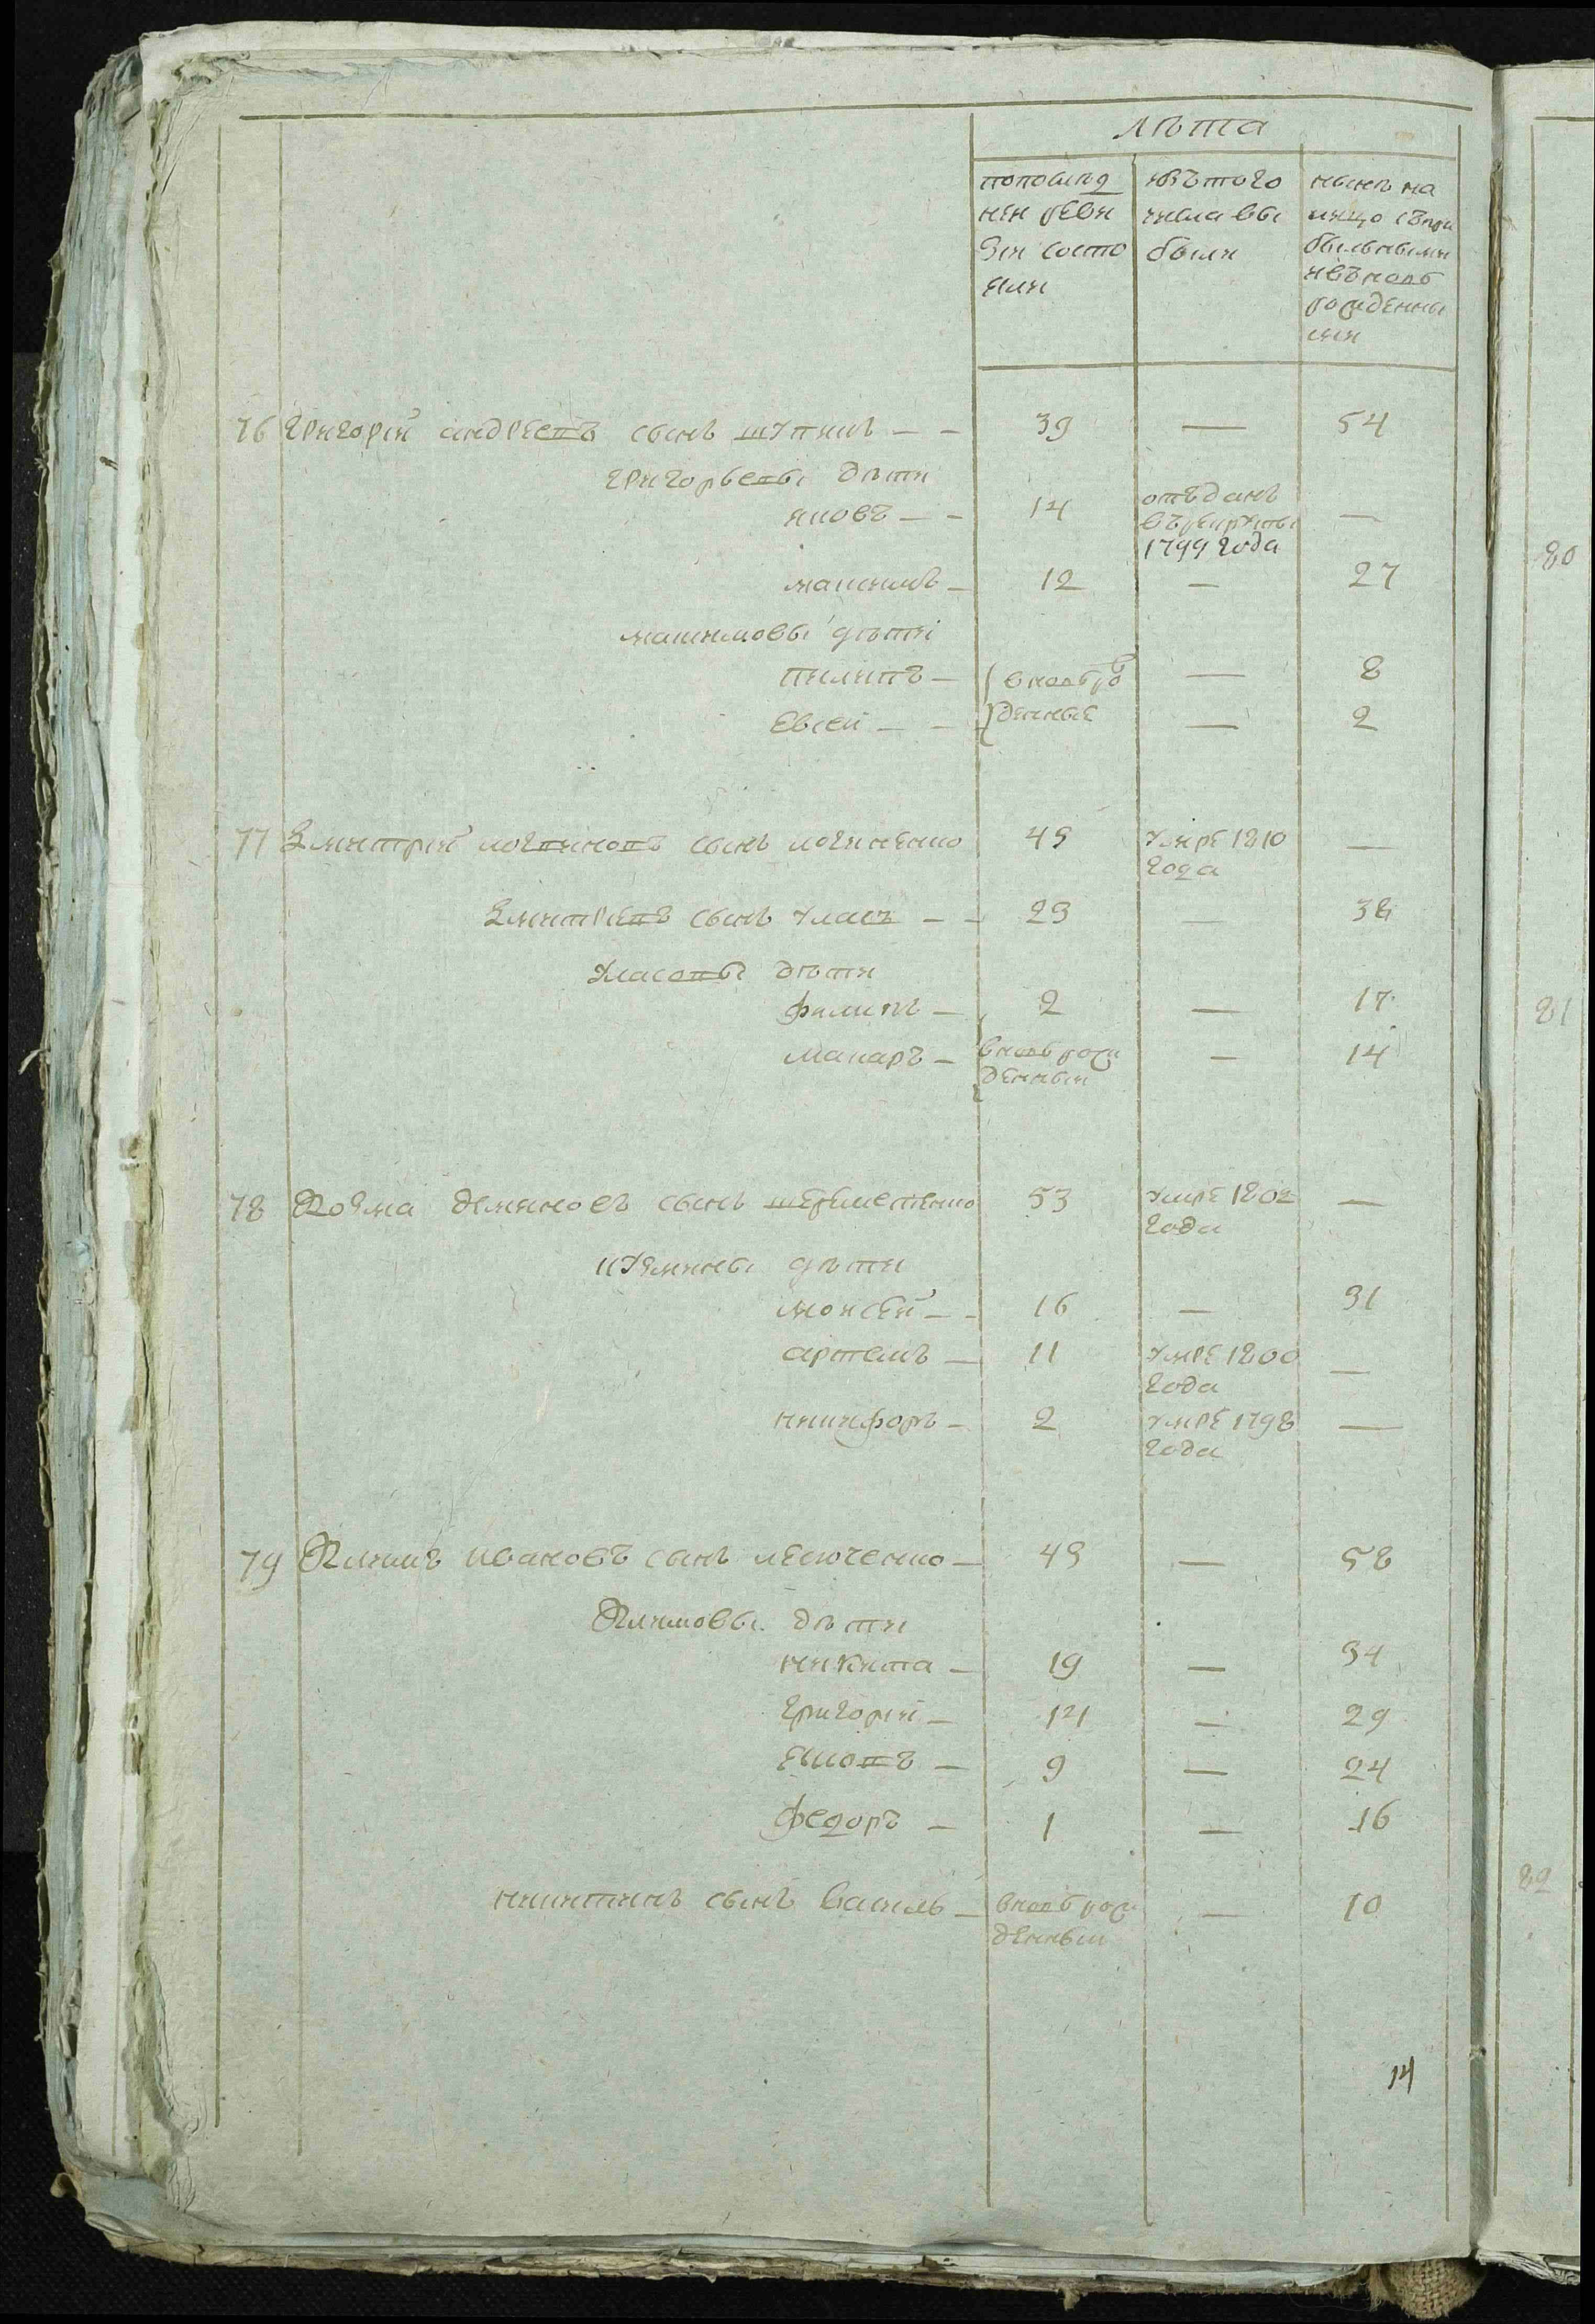 лѣта
попослѣд
ней реви
зіи состо
яли
изътого
числа вы
были
нынѣ на
лицо съпри
быльными
ивъновь
рожденны
ми
76 Григорій андреевъ сынъ 39 — 54
григорьевы дѣти
яковъ — 14 отъданъ въ рекруты 1799 года —
максимъ — 12 — 27
максимовы дѣти
пилипъ — вновь ро — 8
Евсей — денные — 2
77 Дмитрій логвиновъ сынъ логиненко 45 умре 1810 года —
дмитріевъ сынъ Уласъ — 23 — 38
Уласовы дѣти
филипъ — 2 — 17
макаръ — вновь рож — 14
денный
78 Козма деминовъ сынъ шереметенко 53 умре 1802 года —
кузмины дѣти
моисей — 16 — 31
артемъ — 11 умре 1800 года —
никифоръ — 2 умре 1798 года —
79 Климъ Ивановъ сынъ 43 — 58
Климовы дѣти
никита — 19 — 34
григорій — 14 — 29
яковъ — 9 — 24
федоръ — 1 — 16
никитинъ сынъ василь — вновь рож — 10
денный
14
80
81
82